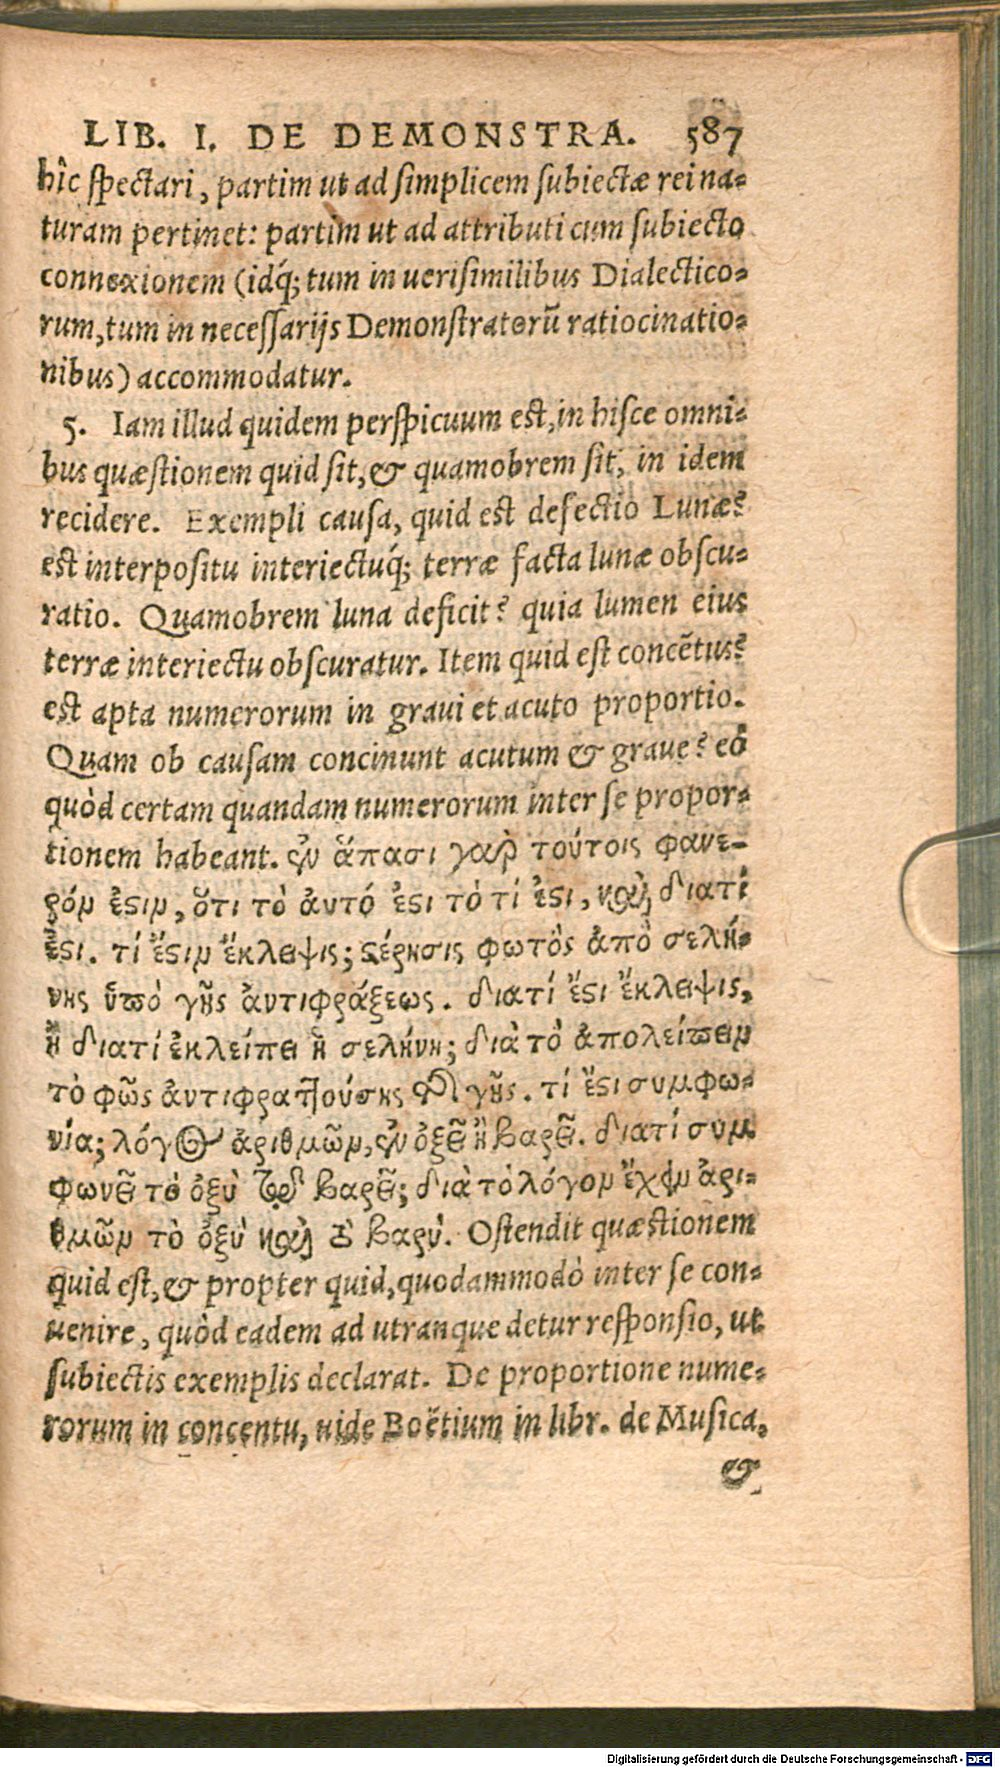 LIB. I. DE DEMONSTRA. 587
hîc spectari, partim ut ad simplicem subiectæ rei na-
turam pertinet: partim ut ad attributi cum subiecto
connexionem (idq́; tum in uerisimilibus Dialectico-
rum, tum in necessarijs Demonstratorũ ratiocinatio-
nibus) accommodatur.
5. Iam illud quidem perspicuum est, in hisce omni-
bus quæstionem quid sit, & quamobrem sit, in idem
recidere. Exempli causa, quid est defectio Lunæ?
est interpositu interiectuq́; terræ facta lunæ obscu-
ratio. Quamobrem luna deficit? quia lumen eius
terræ interiectu obscuratur. Item quid est concẽtus?
est apta numerorum in graui et acuto proportio.
Quam ob causam concinunt acutum & graue? eò
quòd certam quandam numerorum inter se propor-
tionem habeant. ἐν ἅπασι γαρ τούτοις φανε-
ρόν ἐστιν, ὅτι τὸ ἀυτό ἐστι τὸ τί ἐστι, καὶ διατί
ἐστι. τί ἔστιν ἔκλειψις; στέρησις φωτὸς ἀπὸ σελή-
νης ὑπὸ γῆς ἀντιφράξεως. διατί ἔστι ἔκλειψις,
ἢ διατί ἐκλείπει ἡ σελήνη; διὰ τὸ ἀπολείπειν
τὸ φῶς ἀντιφραττούσης τῆς γῆς. τί ἔστι συμφω-
νία; λόγος ἀριθμῶν, ἐν ὀξεῖ ἢ βαρεῖ. διατί συμ
φωνεῖ τὸ ὀξὺ τῷ βαρεῖ; διὰ τὸ λόγον ἔχειν ἀρι-
θμῶν τὸ ὀξὺ καὶ τὸ βαρύ. Ostendit quæstionem
quid est, & propter quid, quodammodò inter se con-
uenire, quòd eadem ad utranque detur responsio, ut
subiectis exemplis declarat. De proportione nume-
rorum in concentu, uide Boëtium in libr. de Musica,
&
Digitalisierung gefördert durch die Deutsche Forschungsgemeinschaft - DFG